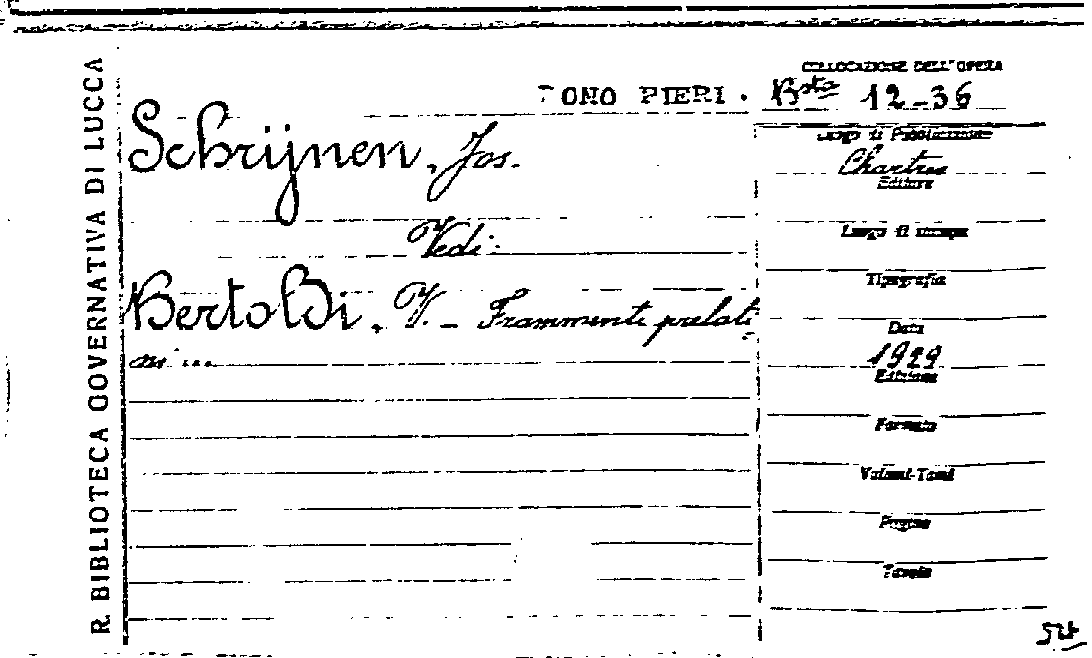 R. BIBLIOTECA GOVERNATIVA DI LUCCA
COLLOCAZIONE DELL'OPERA
DONO PIERI. Bsta 12-36
Schrijnen, Jos.
Vedi:
Bertoldi, V. - Frammenti prelati=
ni ...
Luogo di Pubblicazione
Chartres
Editore
Luogo di stampa
Tipografia
Data
1929
Edizione
Formato
Volumi-Tomi
Pagine
Tavole